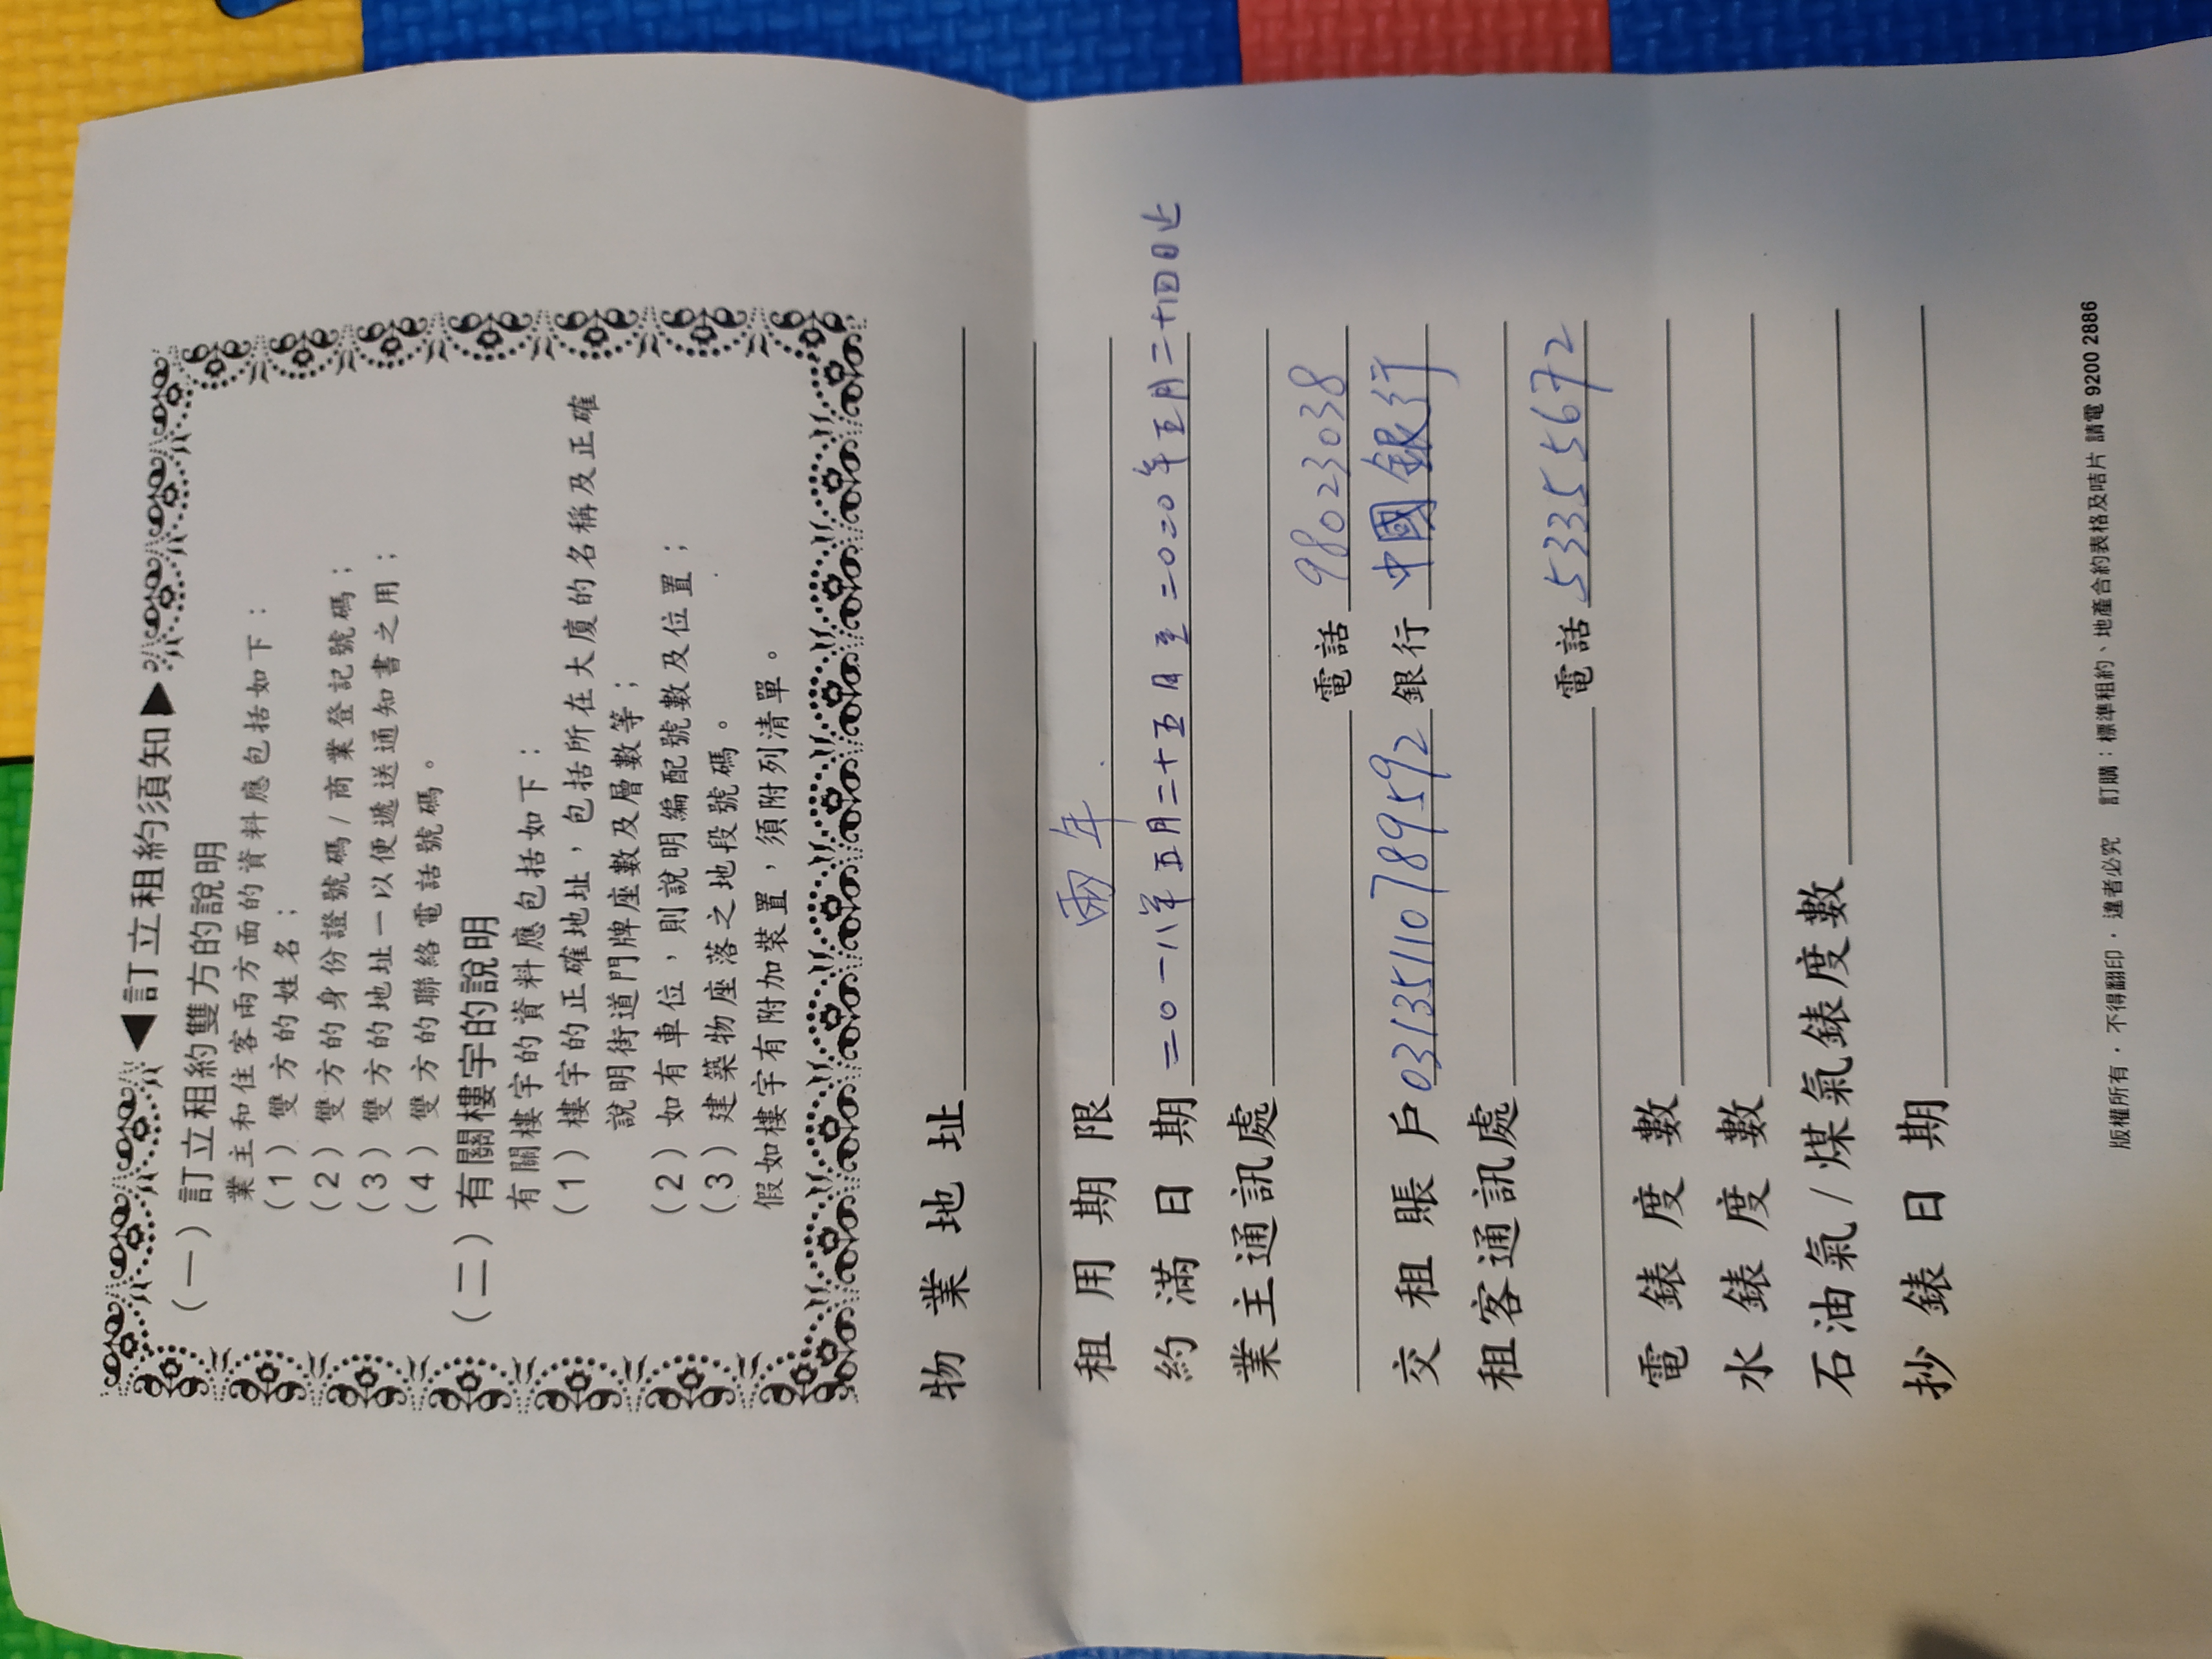 ◀訂立租約須知▶
（一）訂立租約雙方的說明
業主和住客兩方面的資料應包括如下：
（1）雙方的姓名；
（2）雙方的身份證號碼/商業登記號碼；
（3）雙方的地址一以便遞送通知書之用；
（4）雙方的聯絡電話號碼。
（二）有關樓宇的說明
有關樓宇的資料應包括如下：
（1）樓宇的正確地址，包括所在大廈的名稱及正確
說明街道門牌座數及層數等；
（2）如有車位，則說明編配號數及位置；
（3）建築物座落之地段號碼。
假如樓宇有附加裝置，須附列清單。
物業地址
租用期限 兩年
約滿日期 二0一八年五月二十五日至二0二0年五月二十四日止
業主通訊處
電話 98023038
交租賬戶 03135110789592 銀行 中國銀行
租客通訊處
電話 53355672
電錶度數
水錶度數
石油氣/煤氣錶度數
抄錶日期
版權所有．不得翻印．違者必究 訂購：標準租約、地產合約表格及咭片 請電 9200 2886